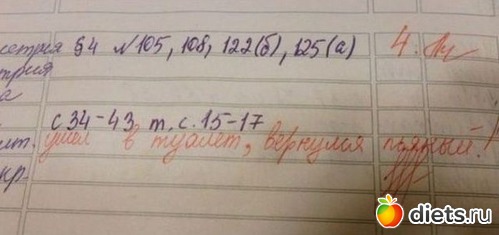 етрия §4 №105, 108, 122(б), 125(а) 4.
трия
а
с 34-43 т, с. 15-17
ушел в туалет, вернулся пьяный!
кр.
diets.ru